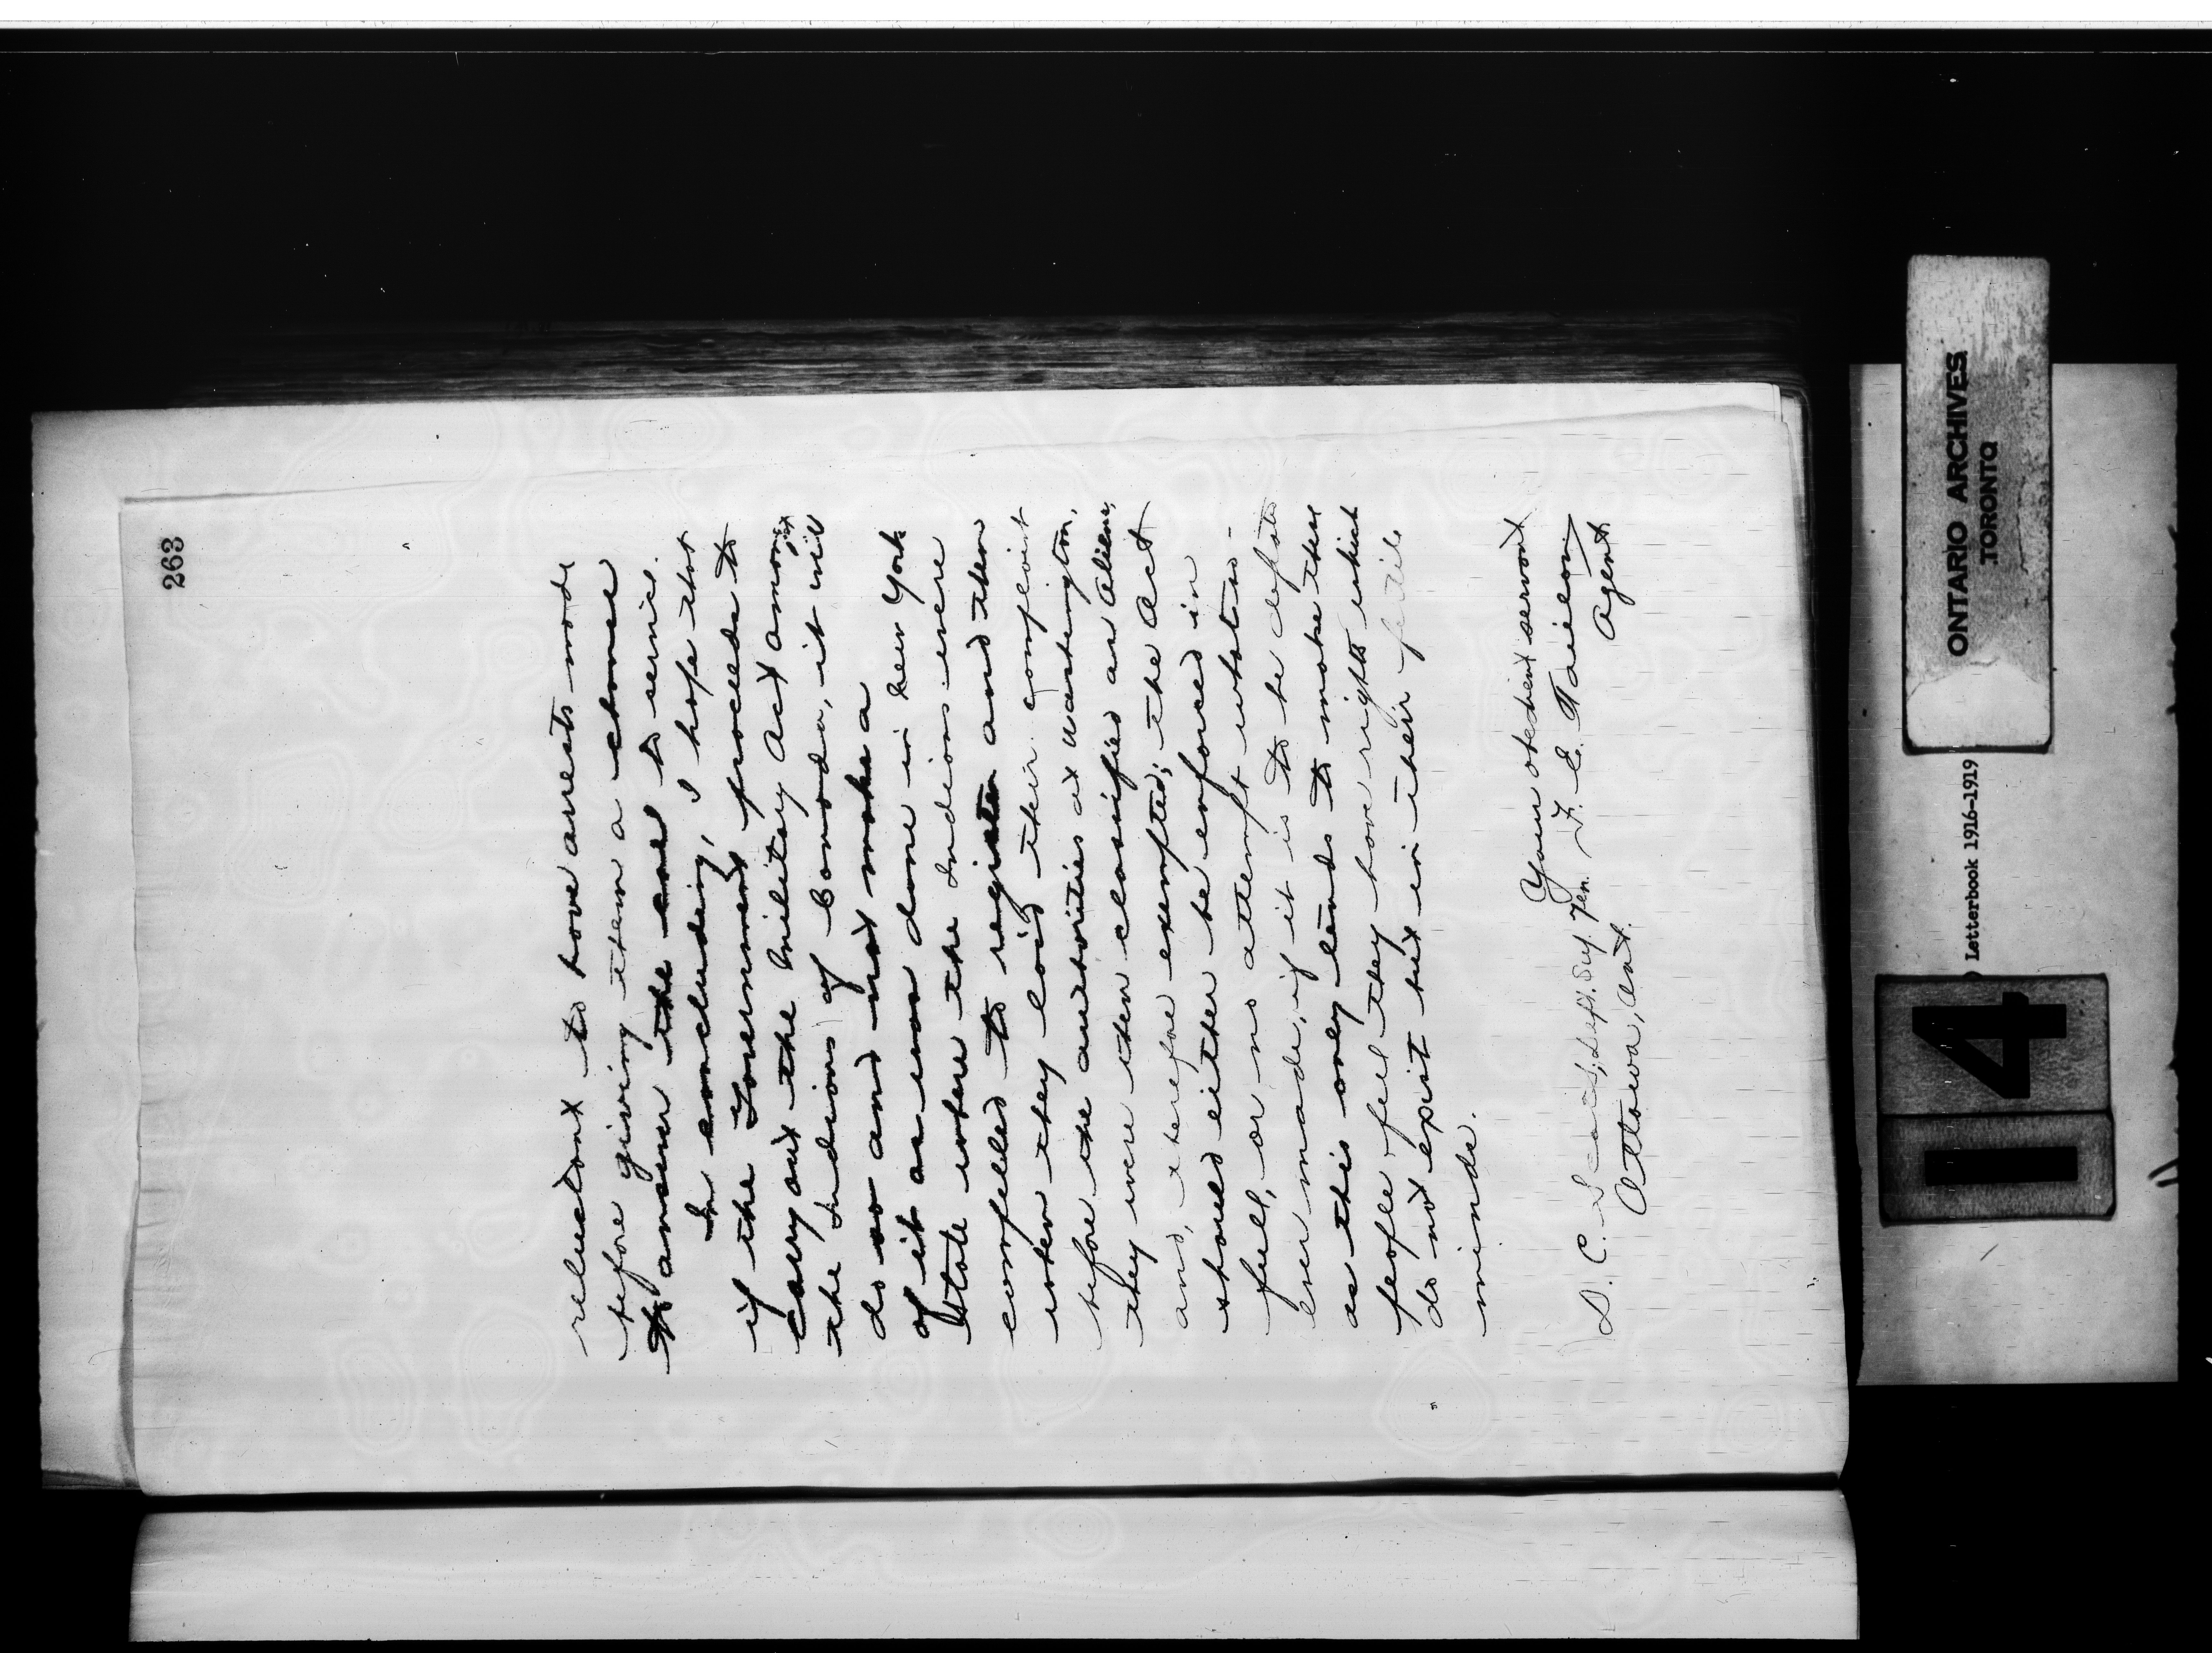 263
reluctant to have arrests made
before giving them a chance
to answer the call to service.
In concluding, I hope that
if the Government proceeds to
carry out the Military Act amongst
the Indians of Canada, it will
do so and not make a
of it as was done in New York
State where the Indians were
compelled to register and then
when they laid their complaint
before the authorities at Washington,
they were then classified as Aliens,
and, therefore exempted; the Act
should either be enforced in
full, or no attempt whatso-
ever made, if it is to be defeated
as this only tends to make these
people feel they have rights which
do not exist but in their fertile
minds.
Your obedient servant
D. C. Scott, Dept. Sup. Gen. F. E. Taillon
Ottawa, Ont. Agent
ONTARIO ARCHIVES
TORONTO
Letterbook 1916-1919
14